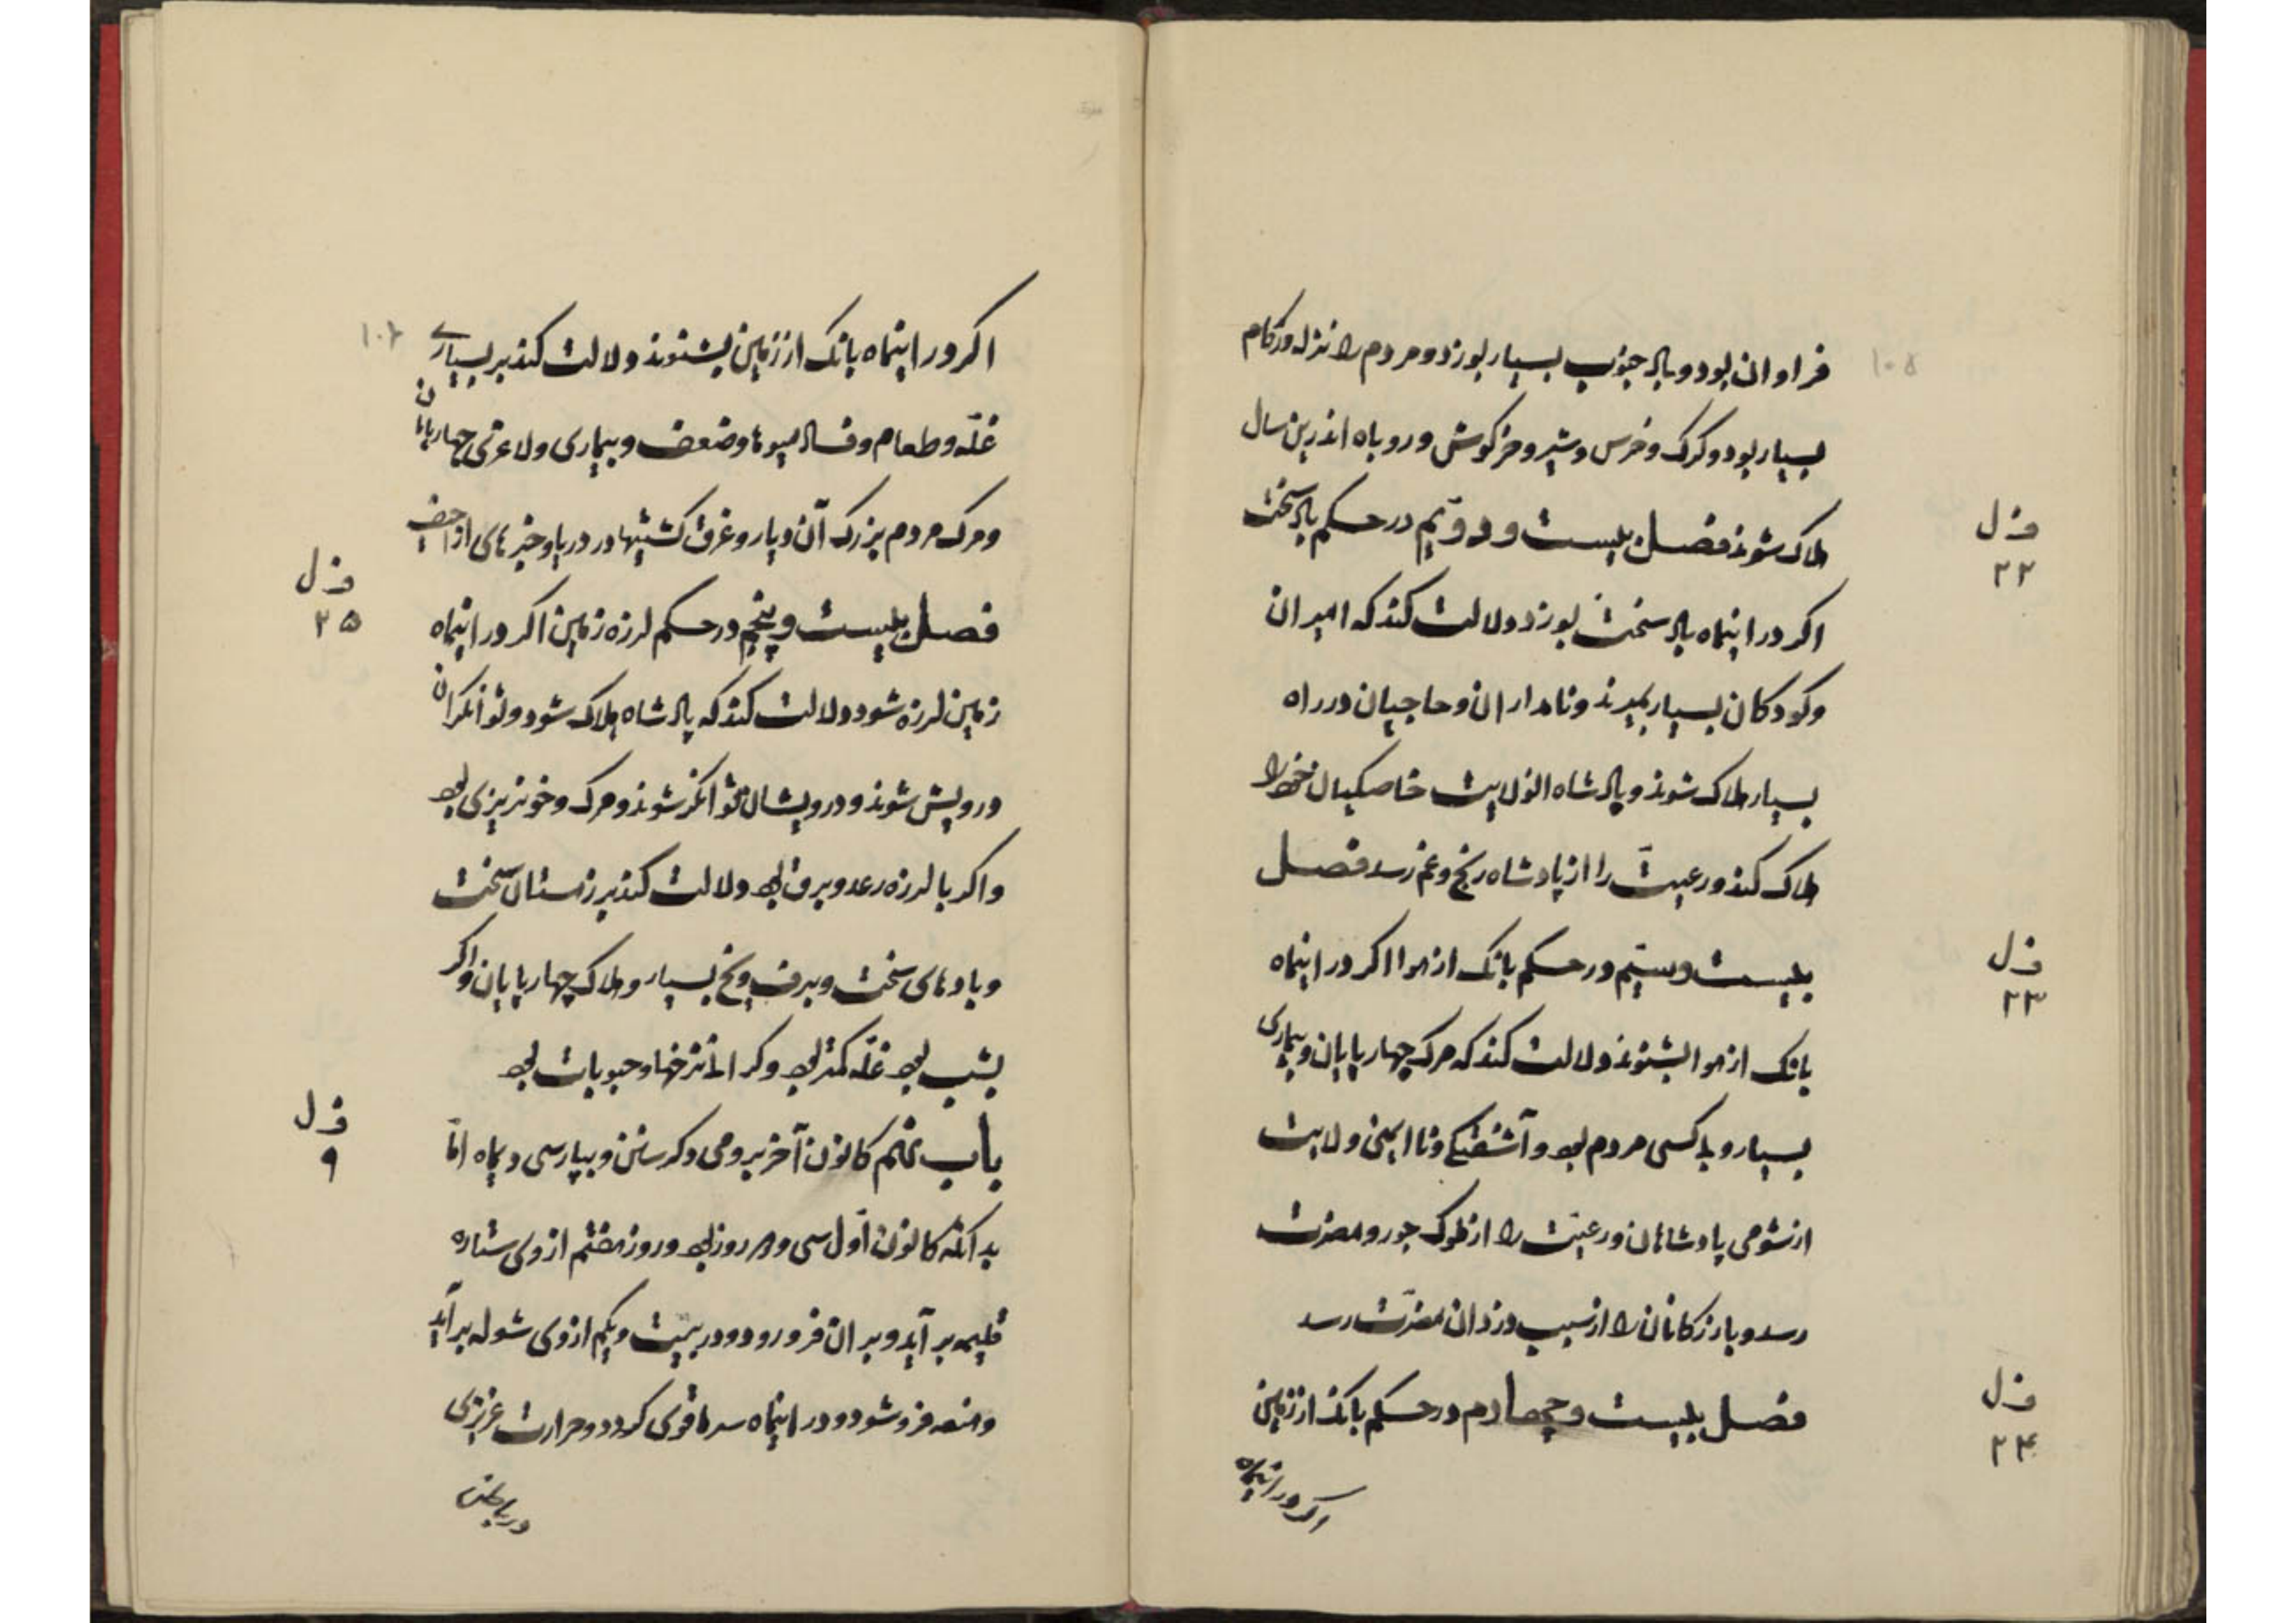 ۱۰۵
فراوان بود و باد جنوب بسیار بوزد و مردم را نزله و زکام
بسیار بود و کرک و خرس و شیر و خرکوش و روباه اندرین سال
هلاک شوند فصل بیست و دوّیم در حکم باد سخت
ف ل
۲۲
اکر در اینماه باد سخت بوزد دولالت کند که امیران
و کودکان بسیار بمیرند و نامداران و حاجیان در راه
بسیار هلاک شوند و پادشاه الولایت خاصکیان خود را
هلاک کند و رعیّت را از پادشاه رنج و غم رسد فصل
بیست و سیّم در حکم بانک از هوا اکر در اینماه
ف ل
۲۳
بانک از هوا بشنوند دلالت کند که مرک چهارپایان و بیماری
بسیار و بد کسی مردم بود و آشفتکی و ناایمنی ولایت
از شومی پادشاهان و رعیّت را از ملوک جور و مضرت
رسد و بازرکانان را از سبب دزدان مضرّت رسد
فصل بیست و چهارم در حکم بانک از زمین
ف ل
۲۴
اکر در اینماه
۱۰۶
اکر در اینماه بانک از زمین بشنوند دلالت کند بر بسیاری
غلّه و طعام و فساد میوها و ضعف و بیماری و لاغری چهارپایان
و مرک مردم بزرک آن دیار و غرق کشتیها در دریا و خبرهای اراجیف
فصل بیست و پنجم در حکم لرزه زمین اکر در اینماه
ف ل
۲۵
زمین لرزه شود دلالت کند که پادشاه هلاک شود و توانکران
درویش شوند و درویشان توانکر شوند و مرک و خونریزی بود
و اکر با لرزه رعد و برق بود دلالت کند بر زمستان سخت
و بادهای سخت و برف و یخ بسیار و هلاک چهارپایان و اکر
بشب بود غلّه کمتر بود و کرانی نرخها و حبوبات بود
باب نهم کانون آخر برومی و کر سانن و بپارسی دیماه امّا
ف ل
۹
بدانکه کانون اوّل سی و روز بود و روز هفتم از وی ستاره
قلیمه بر آید و بران فرو رود و در بیست و یکم از وی شوله بر آید
و هنعه فرو شود و در اینماه سرما قوی کردد و حرارت غریزی
در باطن